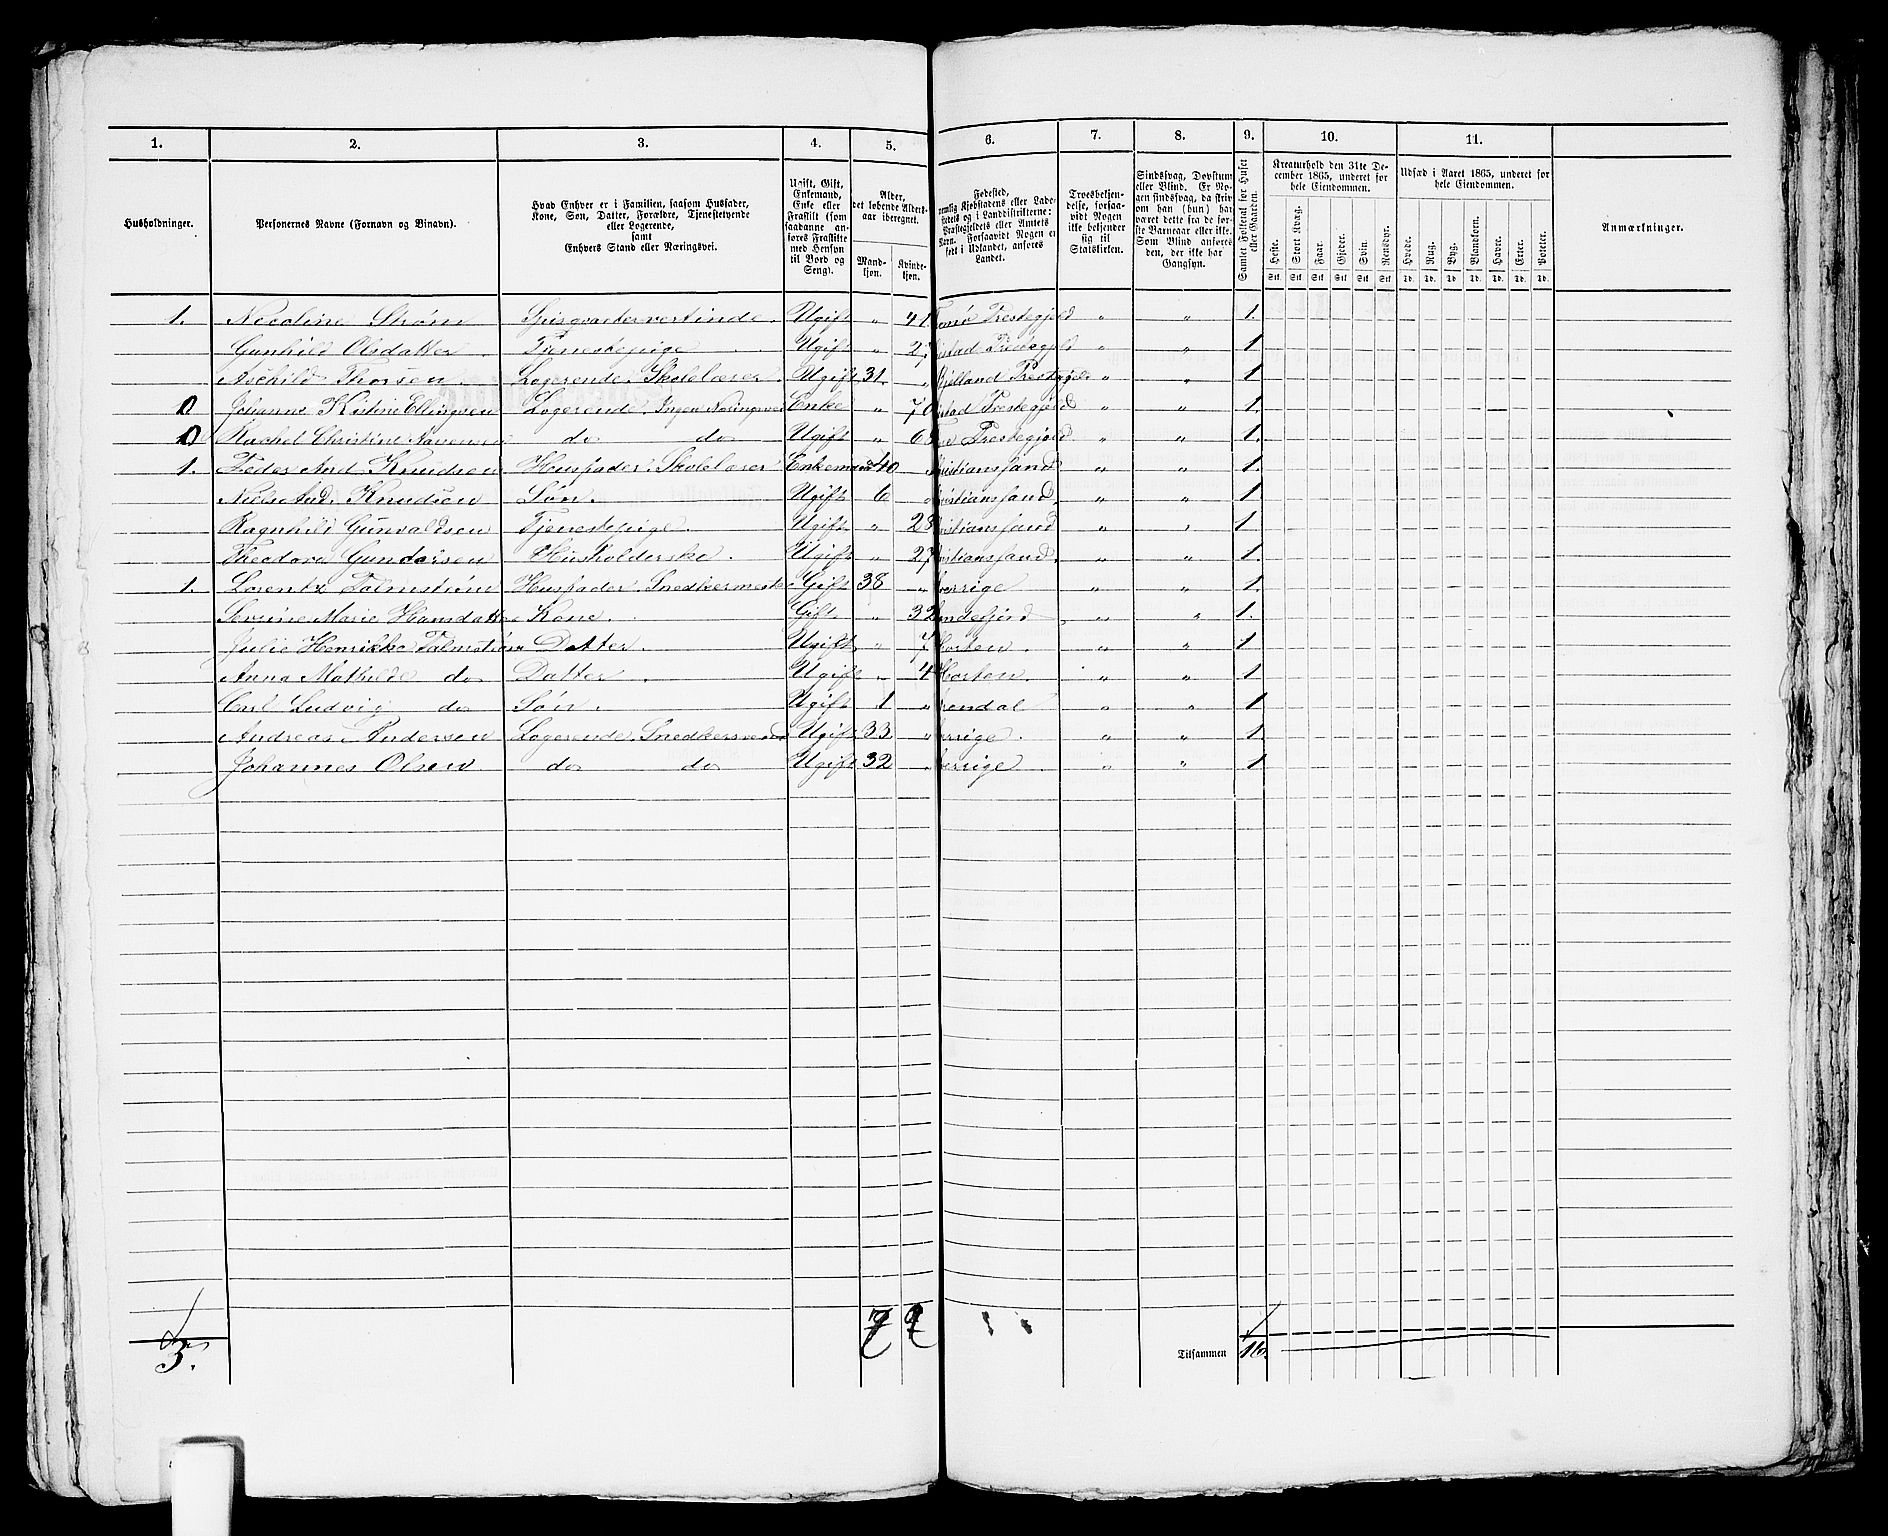 1. 2. 3. 4. 5. 6. 7. 8. 9. 10. 11.
Husholdninger.
Personernes Navne (Fornavn og Binavn).
Hvad Enhver er i Familien, saasom Husfader,
Kone, Søn, Datter, Forældre, Tjenestetyende
eller Logerende,
samt
Enhvers Stand eller Næringsvei.
Ugift, Gift,
Enkemand,
Enke eller
Fraskilt (som
saadanne an-
føres Fraskilte
med Hensyn
til Bord og
Seng).
Alder,
det løbende Alders-
aar iberegnet.
Mand-
kjøn.
Kvinde-
kjøn.
Fødested,
nemlig Kjøbstadens eller Lade-
stedets og i Landdistrikterne:
Præstegjeldets eller Amtets
Navn. Forsaavidt Nogen er
født i Udlandet, anføres
Landet.
Troesbekjen-
delse, forsaa-
vidt Nogen
ikke bekjender
sig til
Statskirken.
Sindssvag, Døvstum
eller Blind. Er No-
gen sindssvag, da skriv
om han (hun) har
været dette fra de før-
ste Barneaar eller ikke.
Som Blind anføres
den, der ikke har
Gangsyn.
Samlet Folketal for Huset
eller Gaarden.
Kreaturhold den 31te De-
cember 1865, underet for
hele Eiendommen.
Heste. Stort Kvæg. Faar. Gjeder. Svin. Rensdyr.
Stk. Stk. Stk. Stk. Stk. Stk.
Udsæd i Aaret 1865, underet for
hele Eiendommen.
Hvede. Rug. Byg. Blandkorn. Havre. Erter. Poteter.
Td. Td. Td. Td. Td. Td. Td.
Anmærkninger.
1. Nicoline Strøm Spisqvarterværtinde. Ugift „ 41 Tromø Prestegjeld „ „ 1.
Gunhild Olsdatter Tjenestepige Ugift „ 27 istad Prestegjeld „ „ 1
Aschild Thorsen Logerende. Skolelærer Ugift 31. „ Prestegjeld „ „ 1
0 Johanne Kistine Ellingsen Logerende. Ingen Næringsvei Enke „ 70 istad Prestegjeld „ „ 1.
0 Rachel Christine do do Ugift „ Prestegjeld „ „ 1.
1. Peder And. Knudsen Husfader. Skolelærer Enkemand 40 „ ristianssand „ „ 1
Niels And. Knudsen Søn. Ugift 6 „ ristianssand. „ „ 1
Ragnhild Gunvaldsen Tjenestepige. Ugift „ 28 ristianssand „ „ 1
Theodora Gundersen Husholderske. Ugift „ 27 ristianssand. „ „ 1.
1. Lorentz Palmstrøm Husfader. Snedkermester Gift 38 „ verrige „ „ 1
Sevrine Marie Hansdatter Kone. Gift „ 32 andefjord „ „ 1.
Julie Henrikke Palmstrøm Datter. Ugift „ 7 Horten. „ „ 1
Anna Mathilde do Datter. Ugift „ 4 Horten. „ „ 1
Carl Ludvig do Søn. Ugift 1 „ rendal „ „ 1
Andreas Andersen Logerende. Snedkersvend Ugift 33 „ verrige. „ „ 1.
Johannes Olsen do do Ugift 32 „ verrige „ „ 1
3. 7 9 Tilsammen 16.